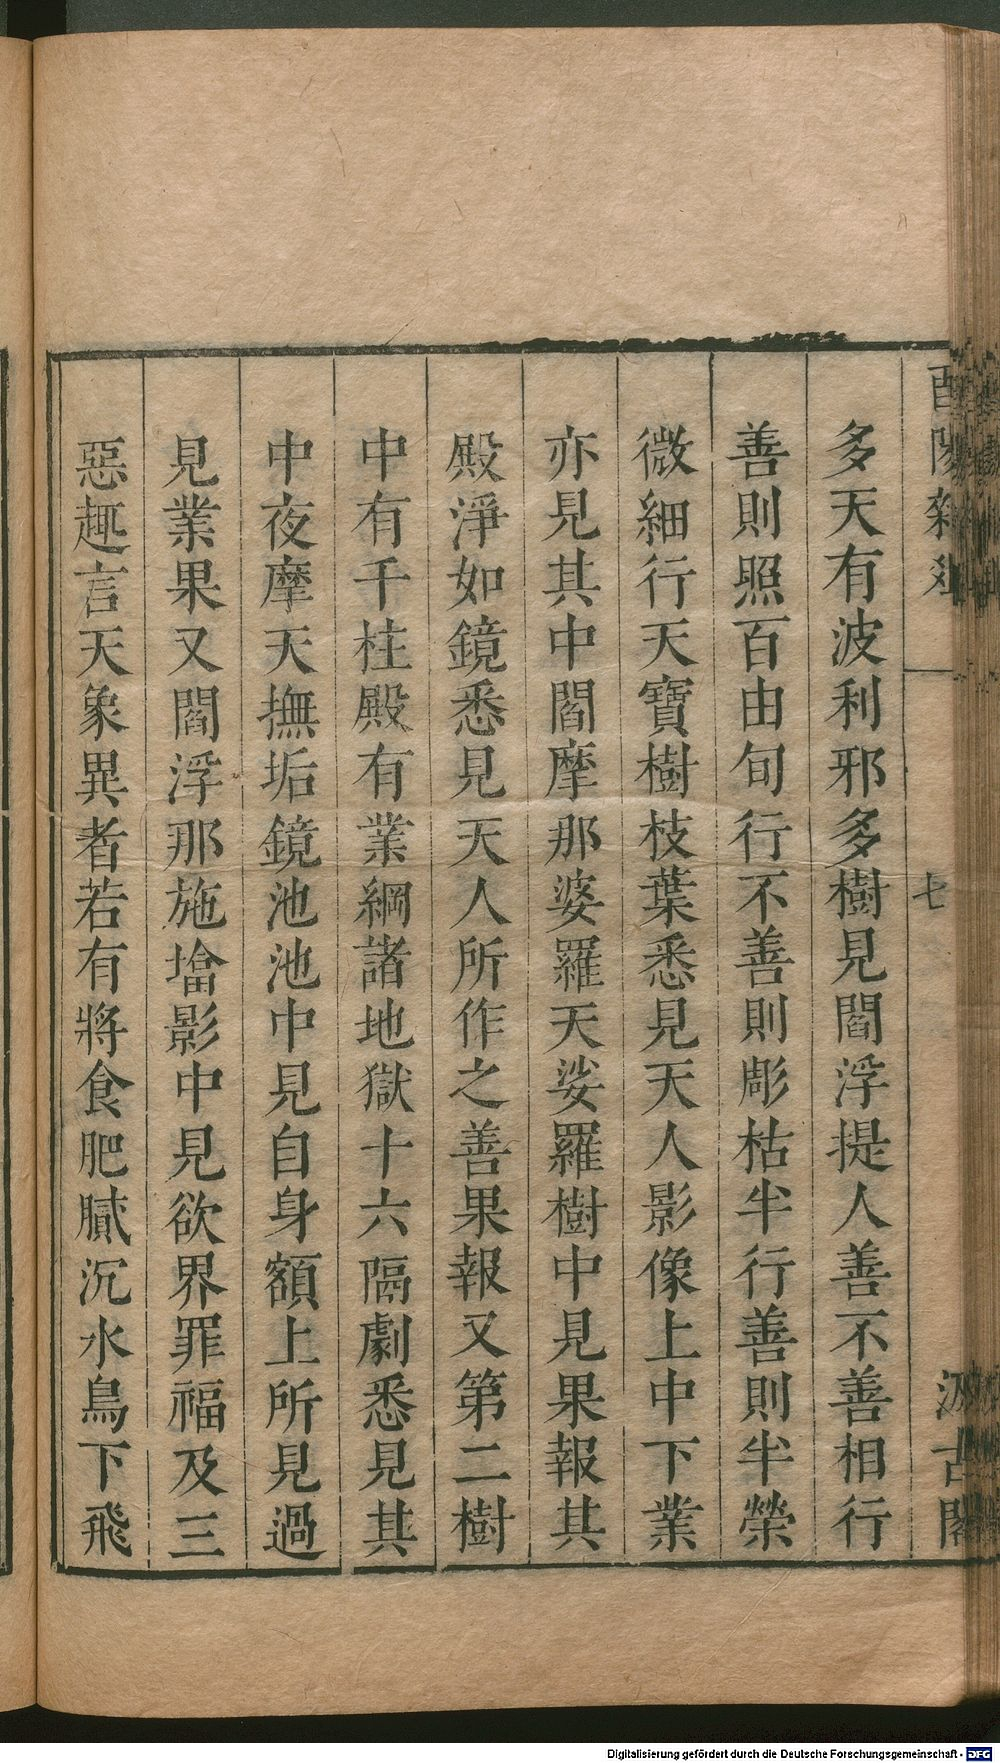 酉陽雜俎
七
汲古閣
多天有波利邪多樹見閻浮提人善不善相行
善則照百由旬行不善則彫枯半行善則半榮
微細行天寶樹枝葉悉見天人影像上中下業
亦見其中閻摩那婆羅天娑羅樹中見果報其
殿淨如鏡悉見天人所作之善果報又第二樹
中有千柱殿有業網諸地獄十六隔劇悉見其
中夜摩天撫垢鏡池池中見自身額上所見過
見業果又閻浮那施塔影中見欲界罪福及三
惡趣言天象異者若有將食肥膩沉水鳥下飛
Digitalisierung gefördert durch die Deutsche Forschungsgemeinschaft - DFG